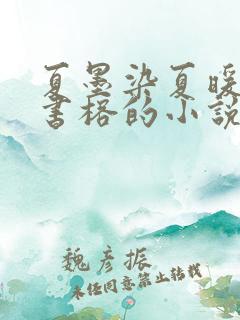 夏墨染夏暖
书格的小说
魏彦振
未经同意禁止转载